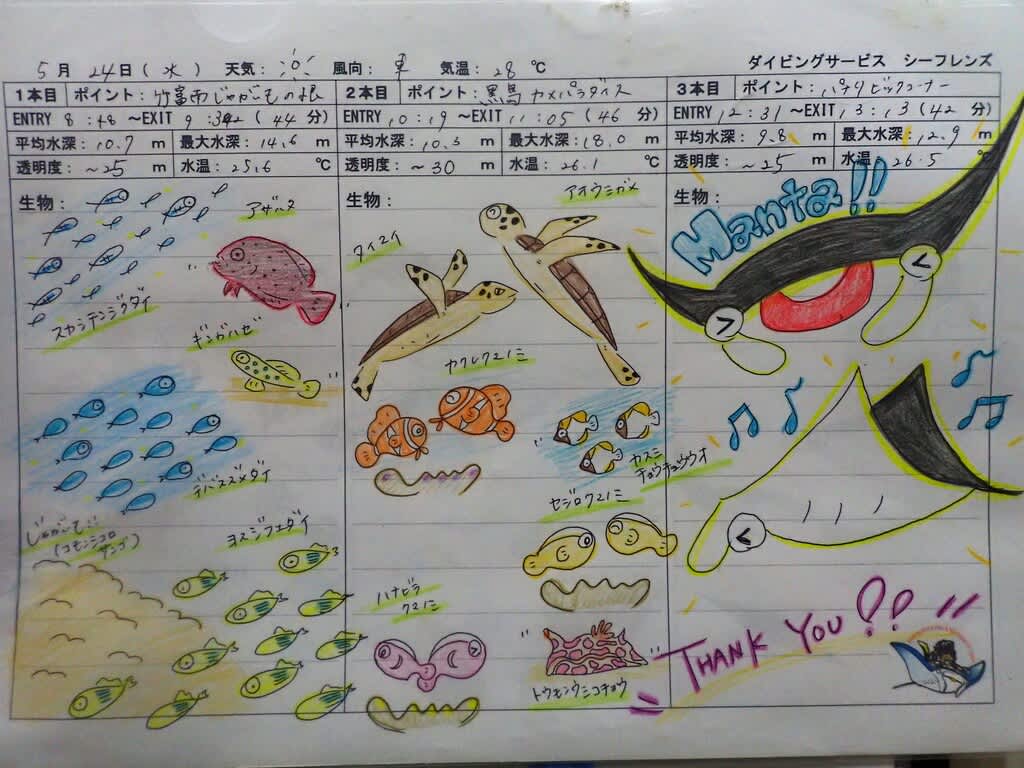 5月24日(水) 天気: 風向: 東 気温: 28℃
ダイビングサービス シーフレンズ
1本目 ポイント: 竹富南じゃがいもの根
ENTRY 8:48 ~EXIT 9:32 (44分)
平均水深: 10.7 m 最大水深: 14.6 m
透明度: ~25 m 水温: 25.6 ℃
生物:
アザハタ
スカシテンジクダイ
ギンガハゼ
デバスズメダイ
じゃがいも!!
(コモンシコロサンゴ)
ヨスジフエダイ
2本目 ポイント: 黒島 カメパラダイス
ENTRY 10:19 ~EXIT 11:05 (46分)
平均水深: 10.3 m 最大水深: 18.0 m
透明度: ~30 m 水温: 26.1 ℃
生物:
アオウミガメ
タイマイ
カクレクマノミ
カスミ
チョウチョウウオ
セジロクマノミ
ハナビラ
クマノミ
トウモンウミコチョウ
3本目 ポイント: パナリビッグコーナー
ENTRY 12:31 ~EXIT 13:13 (42分)
平均水深: 9.8 m 最大水深: 12.9 m
透明度: ~25 m 水温: 26.5 ℃
生物:
Manta!!
THANK YOU!!